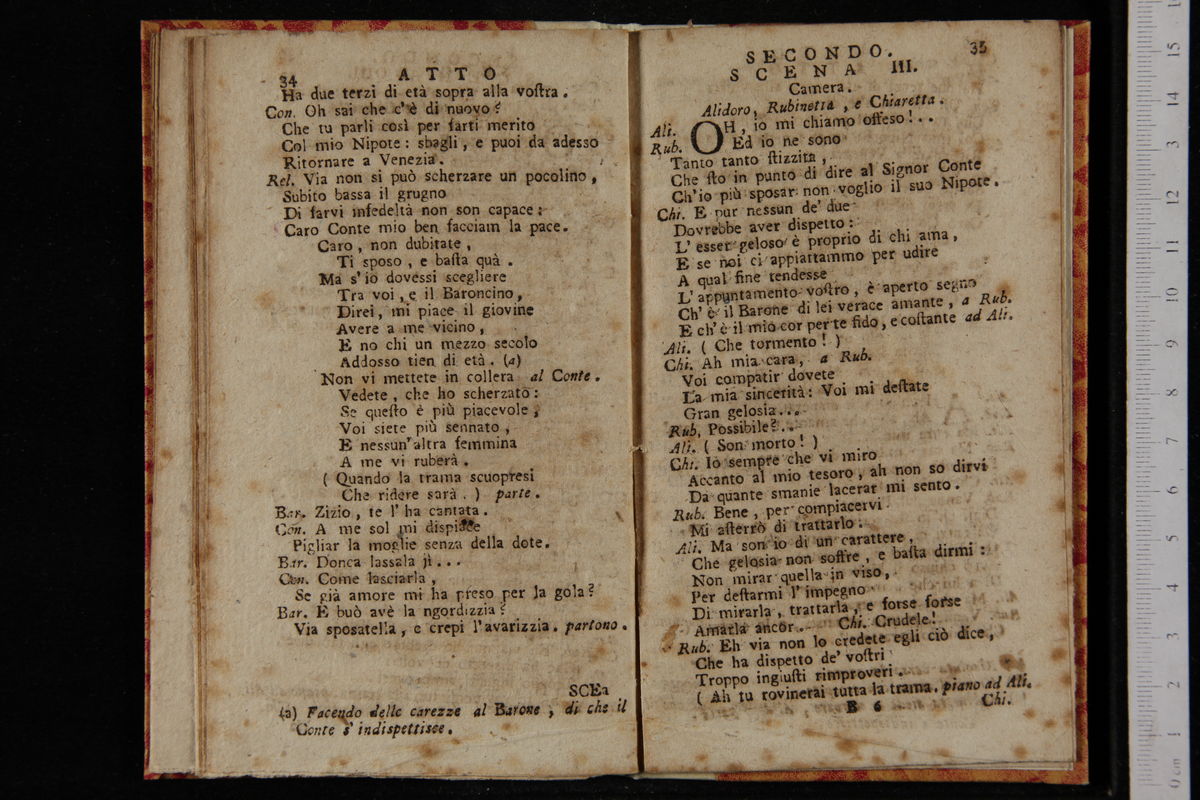 34
ATTO
Ha due terzi di età sopra alla voſtra.
Con. Oh sai che c'è di nuovo?
Che tu parli così per farti merito
Col mio Nipote: sbagli, e puoi da adesso
Ritornare a Venezia.
Rel. Via non si può scherzare un pocolino,
Subito bassa il grugno
Di farvi infedeltà non son capace:
Caro Conte mio ben facciam la pace.
Caro, non dubitate,
Ti sposo, e baſta quà.
Ma s'io dovessi scegliere
Tra voi, e il Baroncino,
Direi, mi piace il giovine
Avere a me vicino,
E no chi un mezzo secolo
Addosso tien di età. (a)
Non vi mettete in collera al Conte.
Vedete, che ho scherzato:
Se queſto è più piacevole,
Voi siete più sennato,
E nessun'altra femmina
A me vi ruberà.
(Quando la trama scuopresi
Che ridere sarà.) parte.
Bar. Zizio, te l'ha cantata.
Con. A me sol mi dispiace
Pigliar la moglie senza della dote.
Bar. Donca lassala jì...
Con. Come lasciarla,
Se già amore mi ha preso per la gola?
Bar. E buò avè la ngordizzia?
Via sposatella, e crepi l'avarizzia. partono.
SCEa
(a) Facendo delle carezze al Barone, di che il
Conte s'indispettisce.
SECONDO.
35
SCENA III.
Camera.
Alidoro, Rubinetta, e Chiaretta.
Ali. OH, io mi chiamo offeso!..
Rub. Ed io ne sono
Tanto tanto ſtizzita,
Che ſto in punto di dire al Signor Conte
Ch'io più sposar non voglio il suo Nipote.
Chi. E pur nessun de' due
Dovrebbe aver dispetto:
L'esser geloso è proprio di chi ama,
E se noi ci appiattammo per udire
A qual fine tendesse
L'appuntamento voſtro, è aperto segno
Ch'è il Barone di lei verace amante, a Rub.
E ch'è il mio cor per te fido, e coſtante ad Ali.
Ali. (Che tormento!)
Chi. Ah mia cara, a Rub.
Voi compatir dovete
La mia sincerità: Voi mi deſtate
Gran gelosia...
Rub. Possibile?..
Ali. (Son morto!)
Chi. Io sempre che vi miro
Accanto al mio tesoro, ah non so dirvi
Da quante smanie lacerar mi sento.
Rub. Bene, per compiacervi
Mi aſterrò di trattarlo:
Ali. Ma son io di un carattere,
Che gelosia non soffre, e baſta dirmi:
Non mirar quella in viso,
Per deſtarmi l'impegno
Di mirarla, trattarla, e forse forse
Amarla ancor. Chi. Crudele!
Rub. Eh via non lo credete egli ciò dice,
Che ha dispetto de' voſtri
Troppo ingiuſti rimproveri.
(Ah tu rovinerai tutta la trama. piano ad Ali.
B 6
Chi.
15
14
13
12
11
10
9
8
7
6
5
4
3
2
1
0 cm